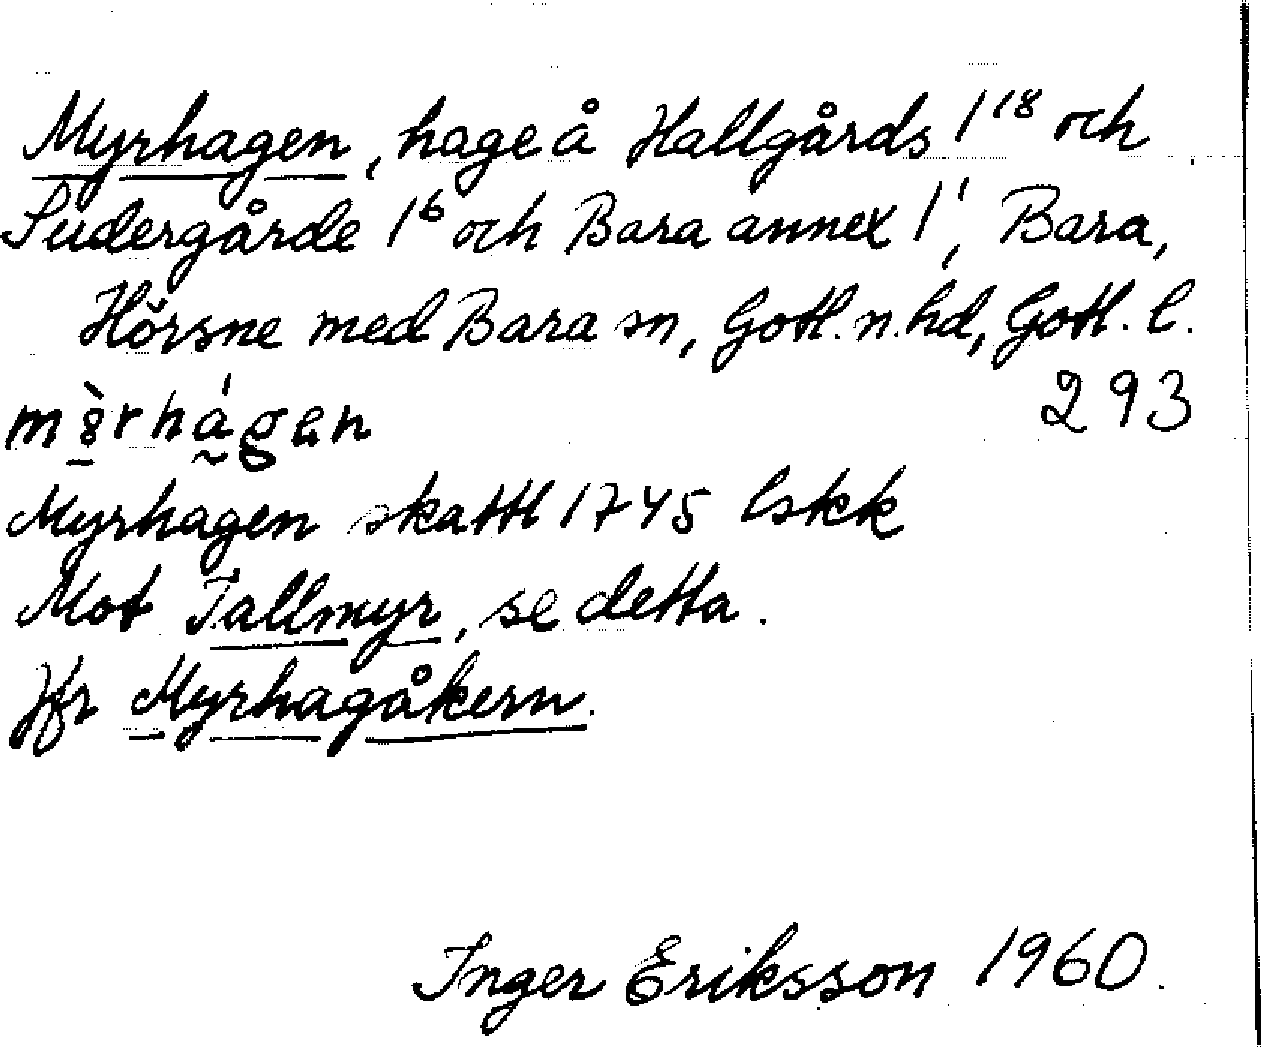 Myrhagen, hage å Hallgårds 1¹⁸ och
Sudergårde 1⁶ och Bara annex 1¹, Bara,
Hörsne med Bara sn, Gotl. n. hd, Gotl. l.
293
Myrhagen skattl 1745 lskk
Mot Tallmyr, se detta.
Jfr Myrhagåkern.
Inger Eriksson 1960.